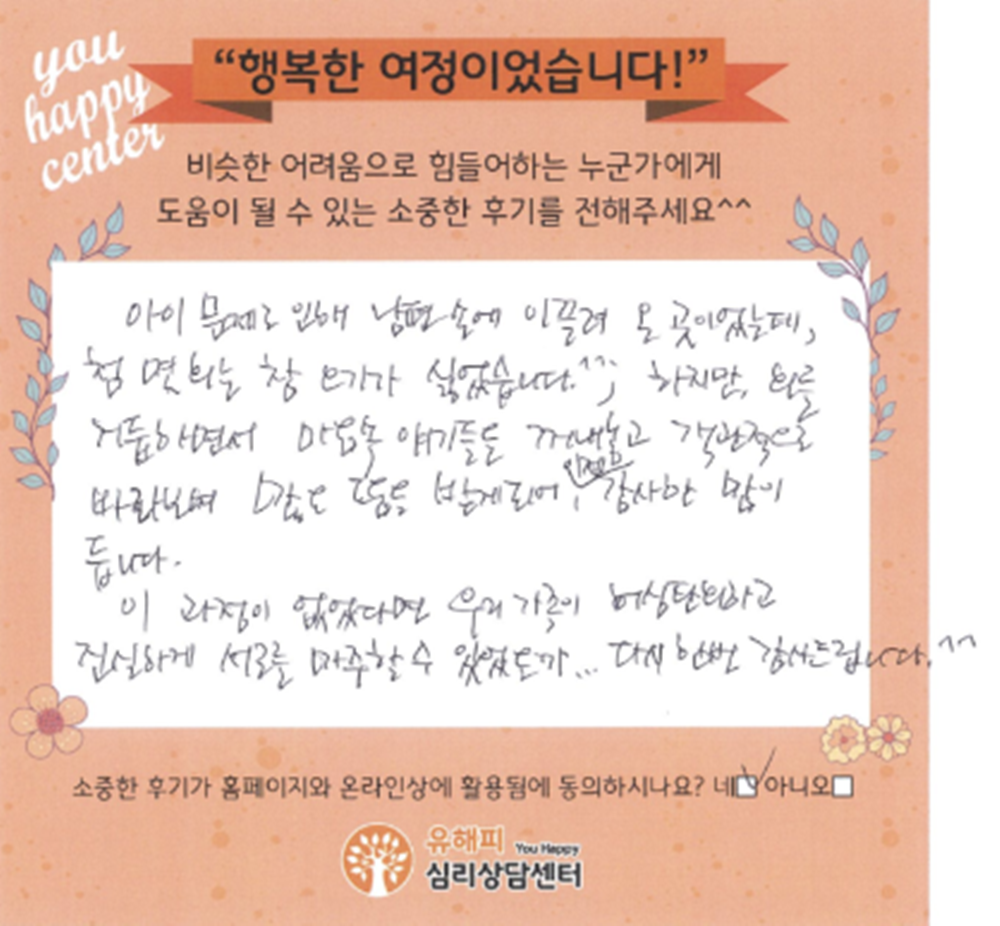 you
happy
center
“행복한 여정이었습니다!”
비슷한 어려움으로 힘들어하는 누군가에게
도움이 될 수 있는 소중한 후기를 전해주세요^^
아이 문제로 인해 남편 손에 이끌려 온 곳이었는데,
첨 몇 회는 참 오기가 싫었습니다.^^; 하지만, 회를
거듭하면서 마음속 얘기들을 꺼내놓고 객관적으로
바라보며 도움도 받게되어, 감사한 맘이
듭니다.
이 과정이 없었다면 우리 가족이 허심탄회하고
진실하게 서로를 마주할 수 있었을까... 다시 한번 감사드립니다.^^
소중한 후기가 홈페이지와 온라인상에 활용됨에 동의하시나요? 네 아니오
유해피 You Happy
심리상담센터